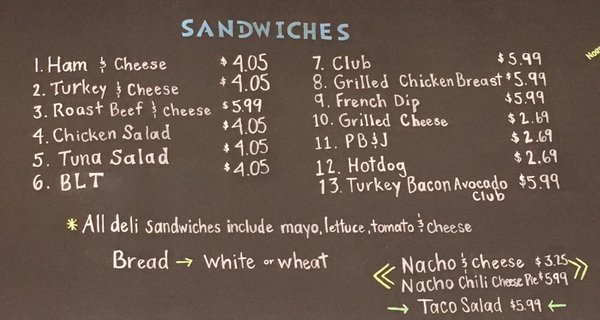 SANDWICHES
1. Ham & Cheese $4.05
2. Turkey & Cheese $4.05
3. Roast Beef & Cheese $5.99
4. Chicken Salad $4.05
5. Tuna Salad $4.05
6. BLT $4.05
7. Club $5.99
8. Grilled Chicken Breast $5.99
9. French Dip $5.99
10. Grilled Cheese $2.69
11. PB&J $2.69
12. Hotdog $2.69
13. Turkey Bacon Avocado $5.99
Club
* All deli sandwiches include mayo, lettuce, tomato & cheese
Bread → White or Wheat
Nacho & Cheese $3.25
Nacho Chili Cheese Pie $5.99
→ Taco Salad $5.99 ←